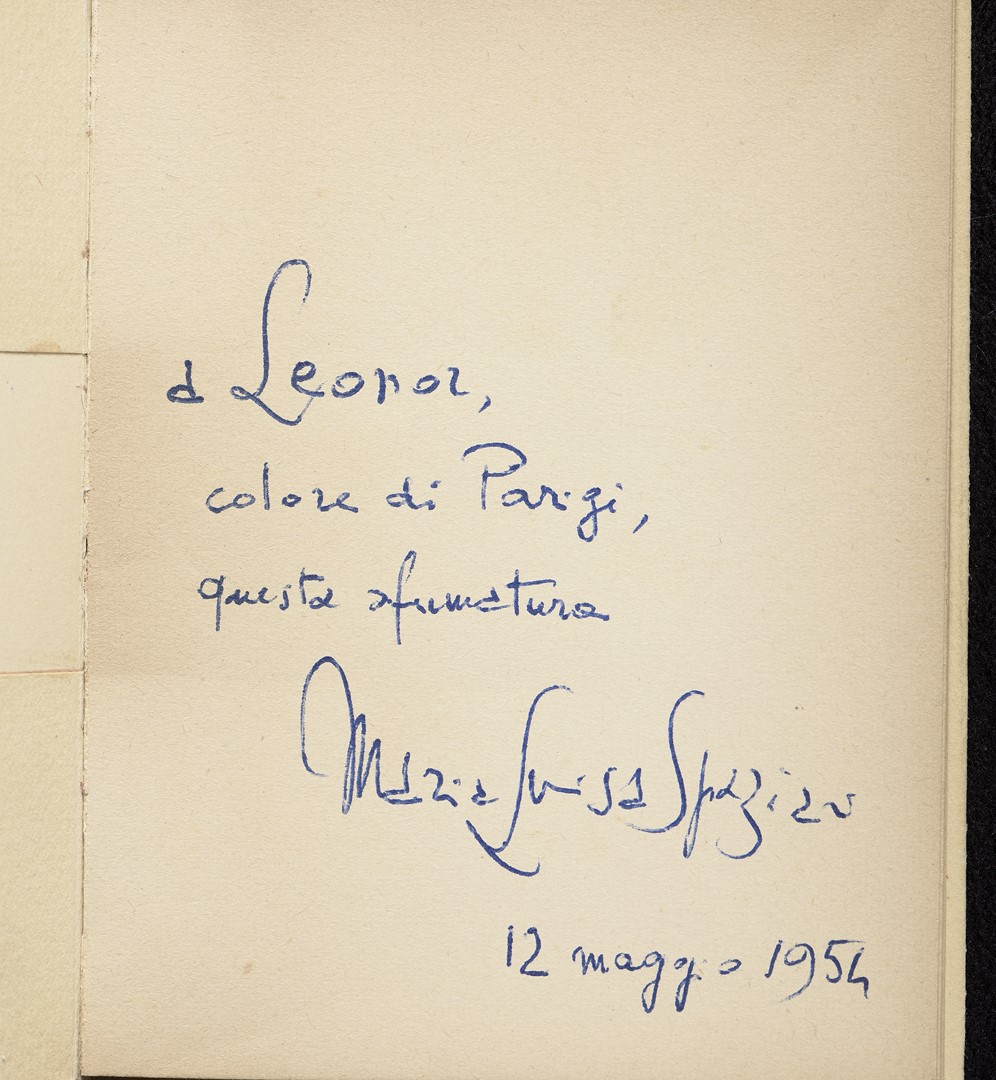 a Leonor,
colore di Parigi,
questa sfumatura
Maria Luisa Spaziani
12 maggio 1954